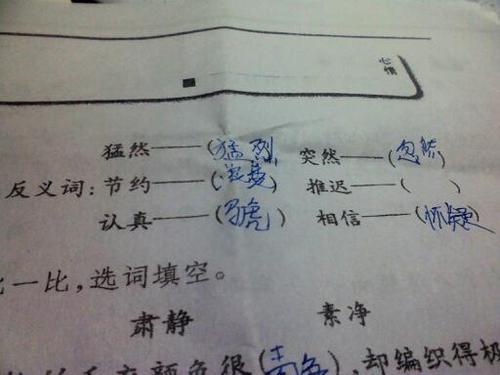 心情
猛然——(猛烈) 突然——(忽然)
反义词：节约——(浪费) 推迟——( )
认真——(马虎) 相信——(怀疑)
一比，选词填空。
肃静 素净
颜色很(素色)，却编织得